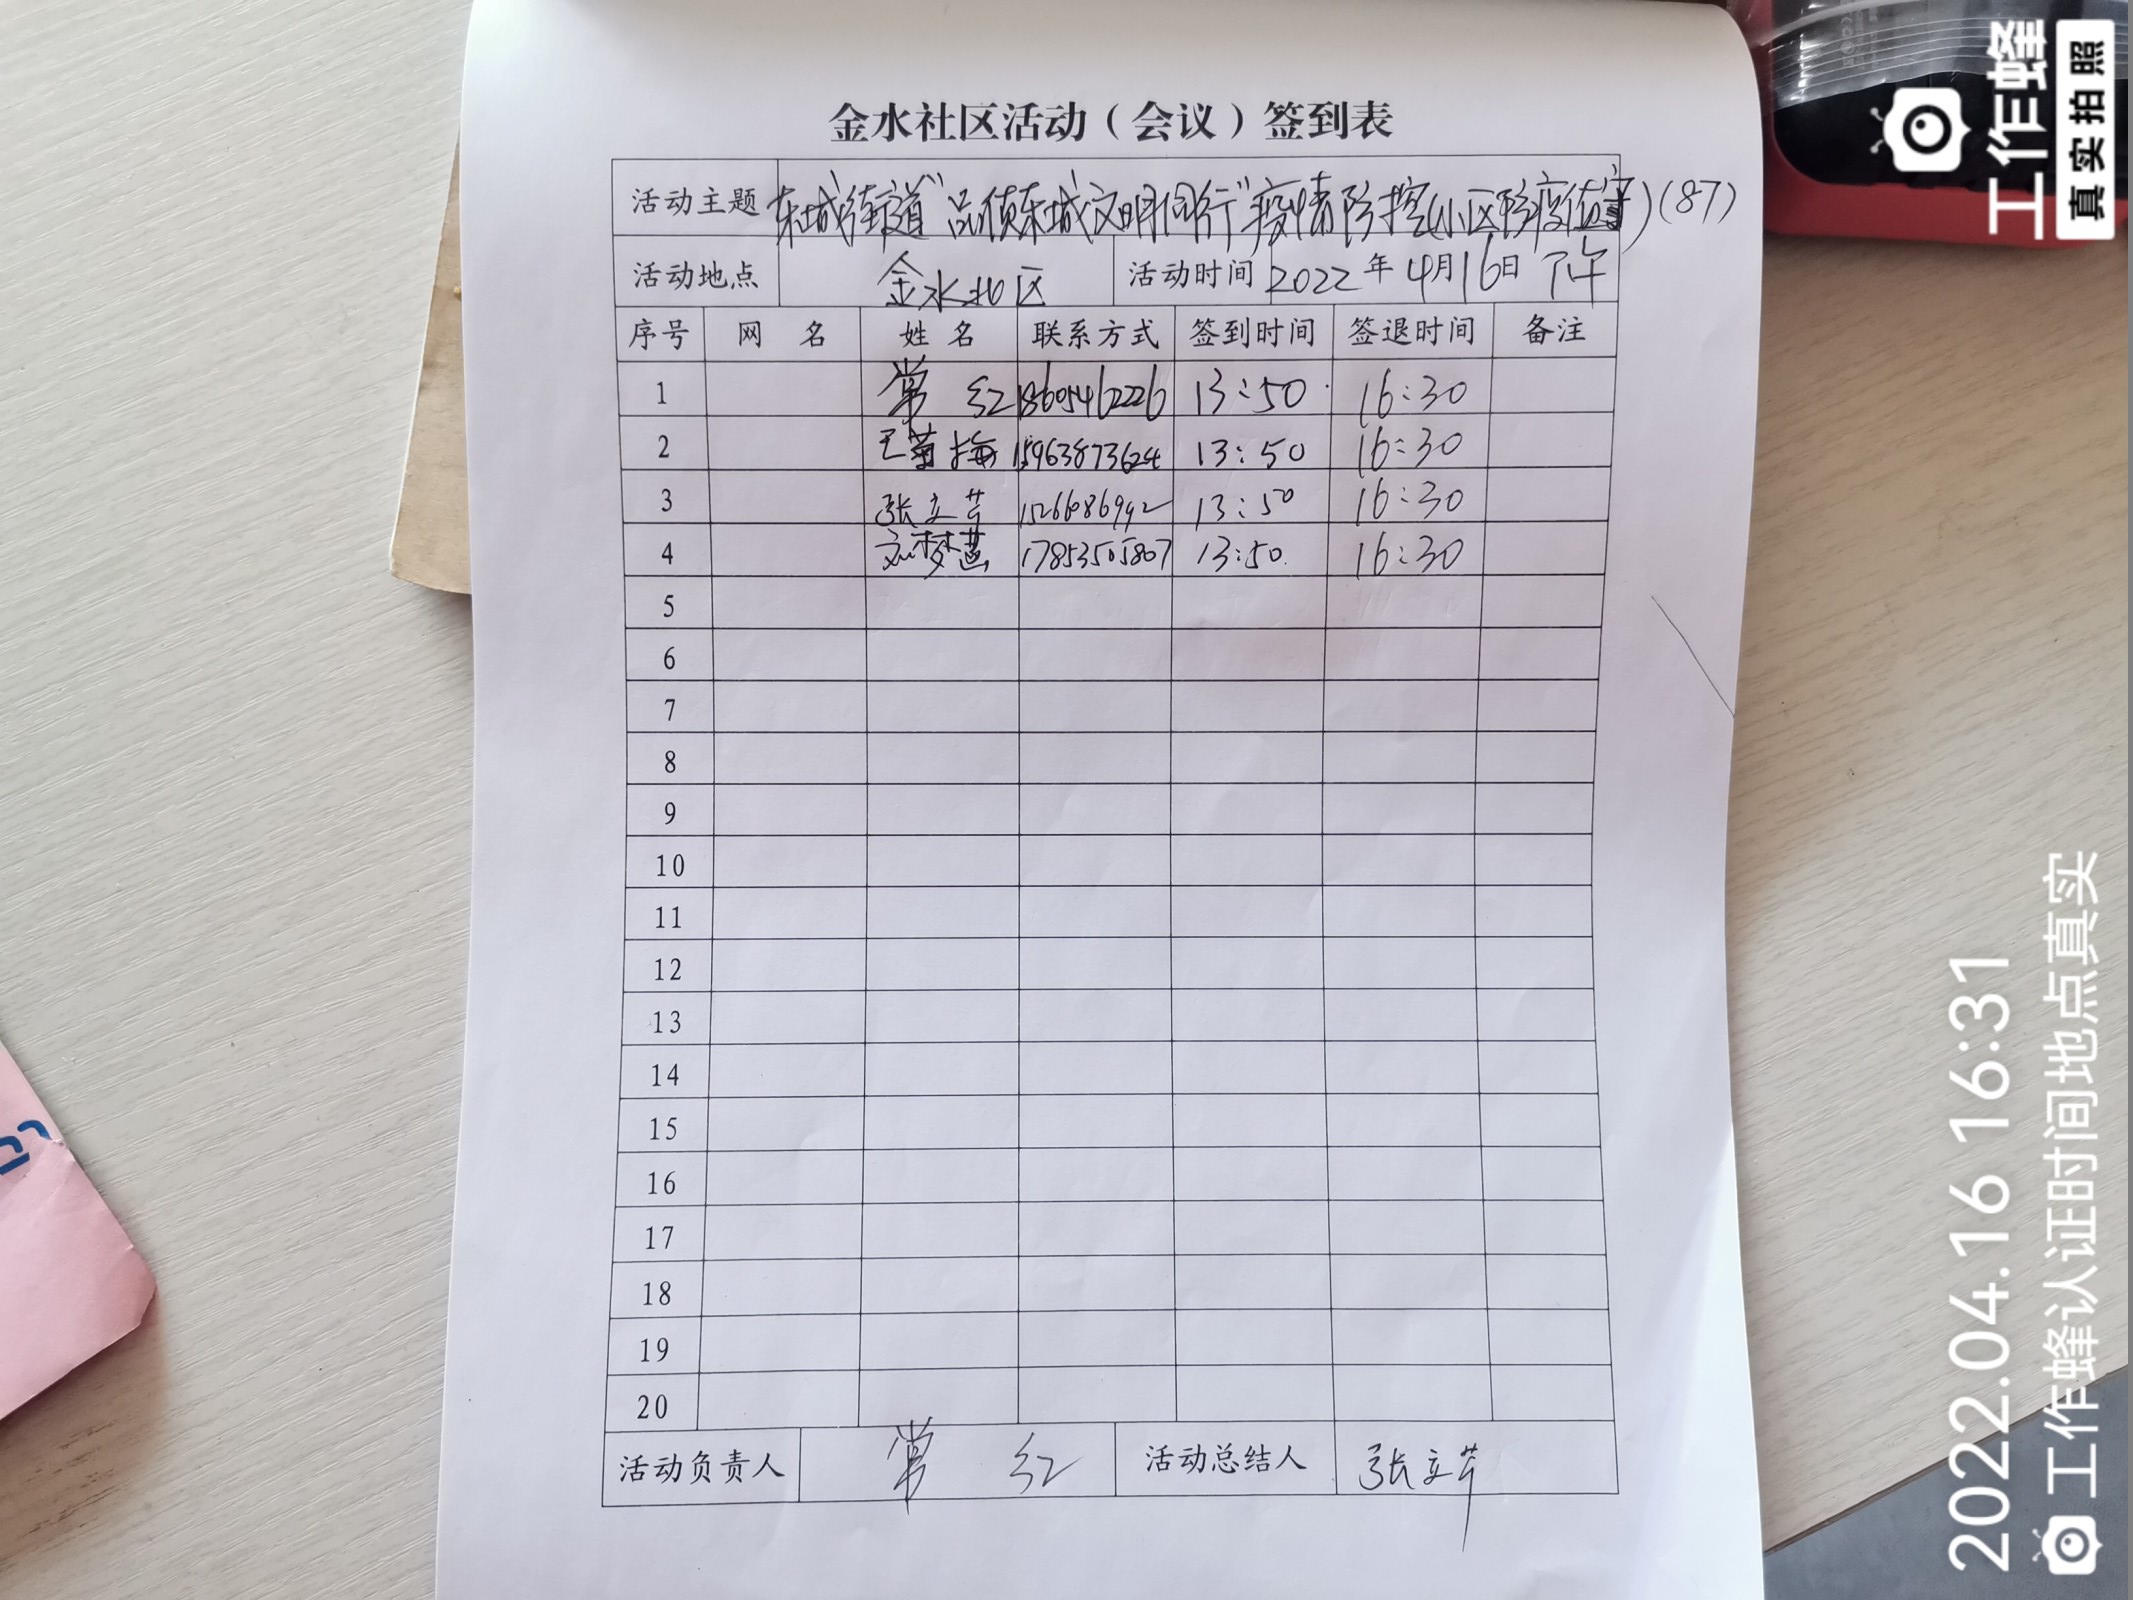 金水社区活动（会议）签到表
活动主题 东城街道"品质东城文明同行"疫情防控(小区防疫值守)(87)
活动地点 金水北区 活动时间 2022年4月16日 下午
序号 网 名 姓 名 联系方式 签到时间 签退时间 备注
1 常 红 18605462226 13:50 16:30
2 王菊梅 15963873624 13:50 16:30
3 张立芹 13:50 16:30
4 刘梦 17853505807 13:50 16:30
5
6
7
8
9
10
11
12
13
14
15
16
17
18
19
20
活动负责人 常 红 活动总结人 张立芹
工作蜂
真实拍照
2022.04.16 16:31
工作蜂认证时间地点真实